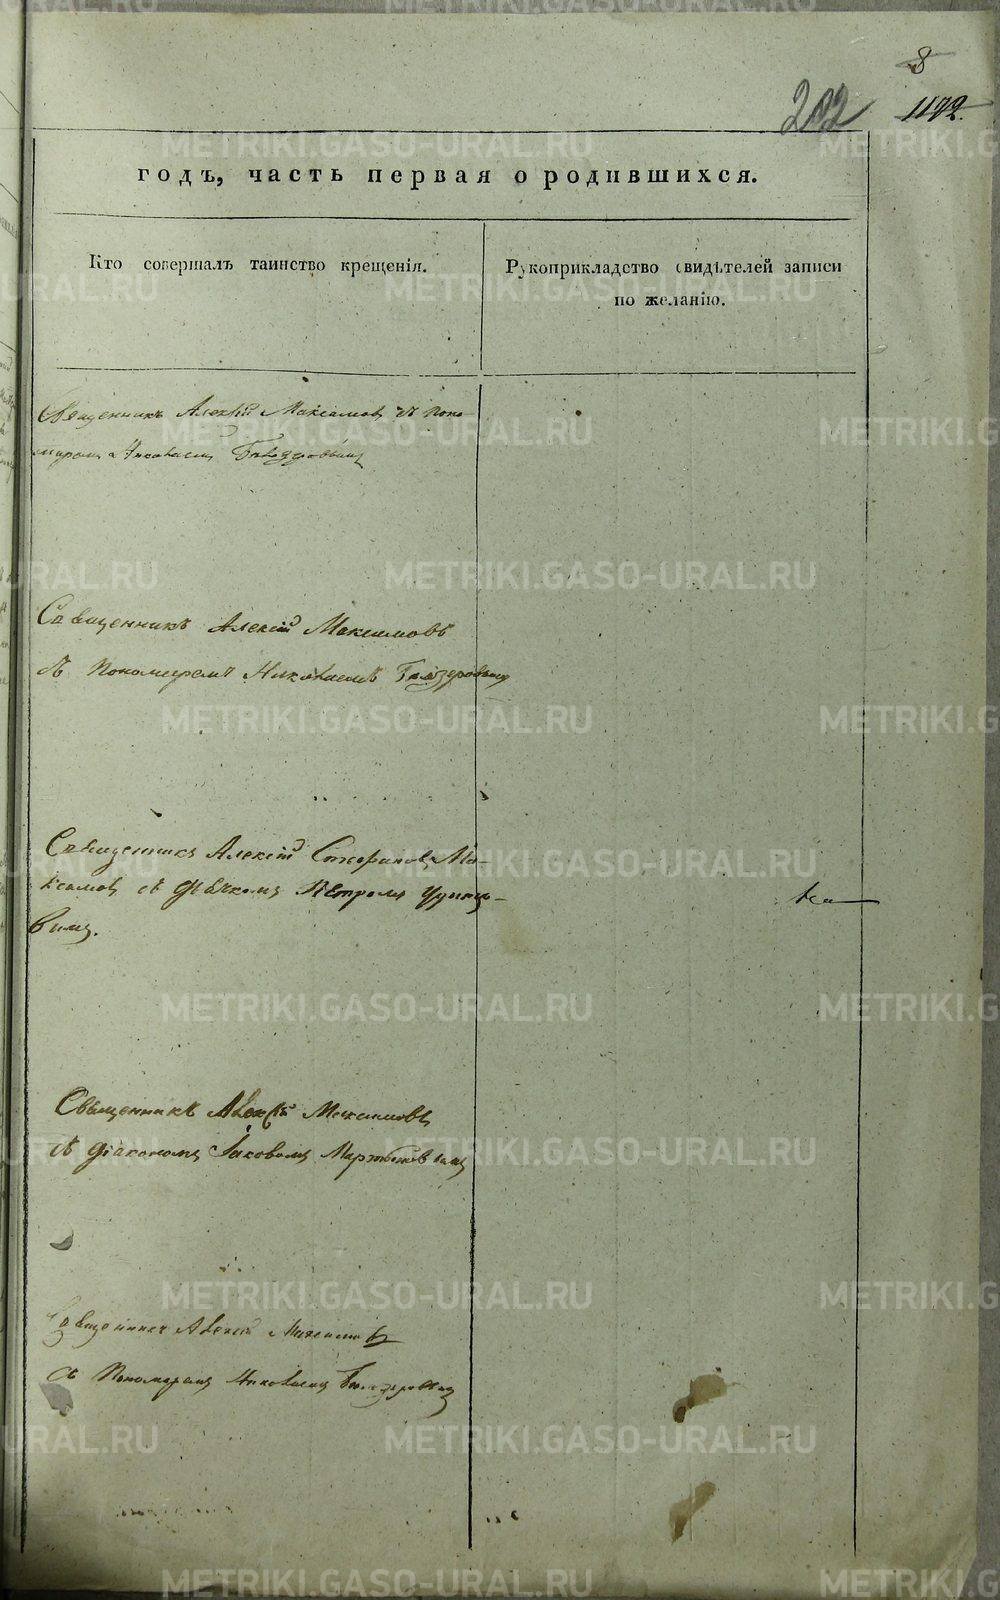 8
202 1172.
годъ, часть первая о родившихся.
Кто совершалъ таинство крещенія.
Рукоприкладство свидѣтелей записи
по желанію.
Священникъ Алексій Максимовъ съ поно-
маремъ Николаемъ
Священникъ Алексій Максимовъ
съ Пономаремъ Николаемъ
Священникъ Алексій Стефановъ Ма-
ксимовъ съ дьячкомъ Петромъ Удинцо-
вымъ.
ка
Священникъ Алексѣй Максимовъ
съ діакономъ Іаковомъ
Священникъ Алексій Максимовъ
съ Пономаремъ Николаемъ
METRIKI.GASO-URAL.RU